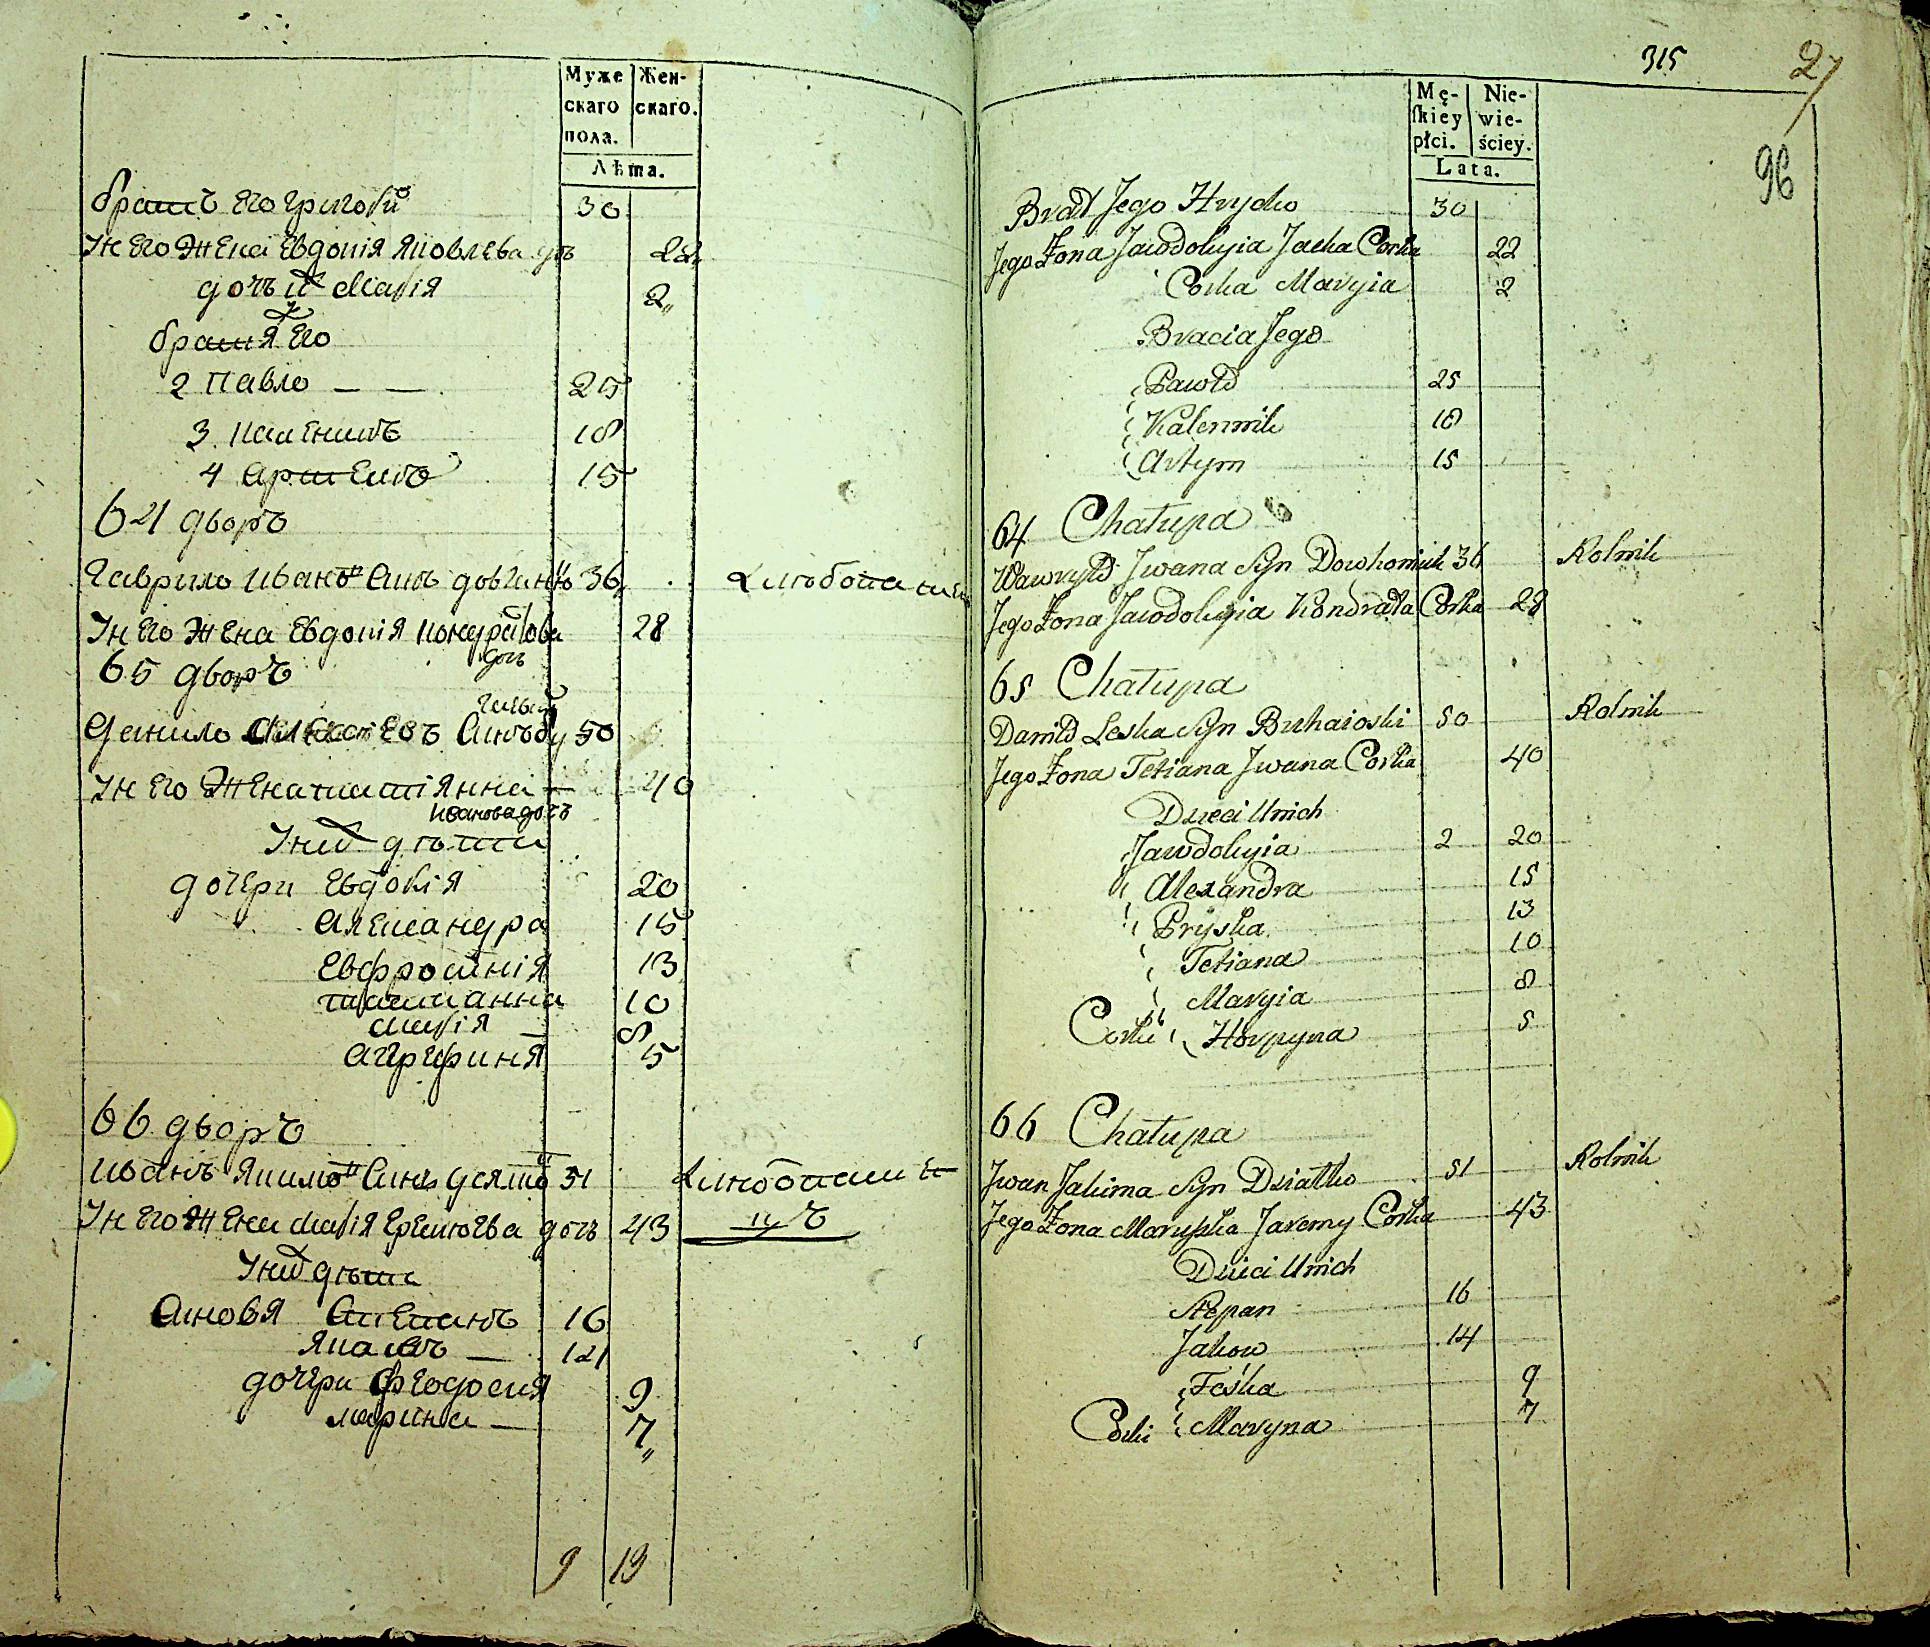 Муже
скаго
пола.
Жен-
скаго.
Лѣта.
братъ его Григорий 30
Ін его жена Евдокія Яковлева дочь 22
дочъ их Марія 2
братя его
2 Павло — — 25
3 Каленикъ 18
4 Артемъ 15
64 дворъ
Гаврило Ивановъ Синъ 36 хлебопашецъ
Ін его жена Евдокія Кондратова дочь 28
65 дворъ
Данило Алексіевъ Синъ 50
Ін его жена Татіянна Иванова дочъ 40
Іхъ дѣти
дочери Евдокія 20
Александра 15
Евфросинія 13
Татианна 10
Марія — 8
Агрефиня 5
66 дворъ
Иванъ Якимовъ Синъ Дзятко 51 хлебопаше
Ін его жена Марія Еремѣева дочъ 43 цъ
Іхъ дѣти
Синовя Степанъ 16
Яковъ — 14
дочери Феодосия 9
Марина — 7
9 19
315
27
96
Mę-
ſkiey
płci.
Nie-
wie-
ściey.
Lata.
Brat Jego Hryćko 30
Jego Żona Jawdokyia Jacka Corka 22
Corka Maryia 2
Bracia Jego
Pawło 25
Kalennik 18
Artym 15
64 Chałupa
Wawryło Jwana Syn Dowhoniuk 36 Rolnik
Jego Żona Jawdokyia Kondrata Corka 28
65 Chałupa
Daniło Leska Syn Buhaioski 50 Rolnik
Jego Żona Tetiana Jwana Corka 40
Dzieci Unich
Jawdokyia 2 20
Alexandra 15
Pryśka 13
Tetiana 10
Maryia 8
Corki Horpyna 5
66 Chałupa
Jwan Jakima Syn Dziatko 51 Rolnik
Jego Żona Maruszka Jaremy Corka 43
Dzieci Unich
Stepan 16
Jakow 14
Feśka 9
Corki Maryna 7